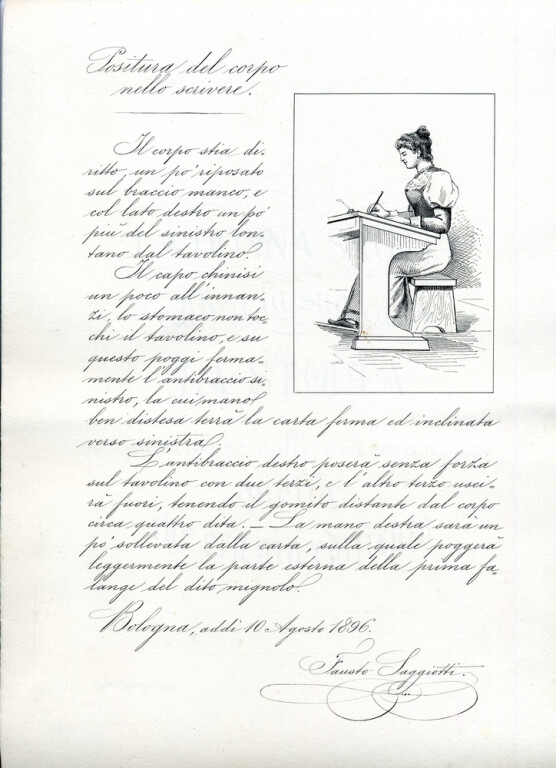 Positura del corpo
nello scrivere.
Il corpo stia di-
ritto, un po' riposato
sul braccio manco, e
col lato destro un po'
più del sinistro lon-
tano dal tavolino.
Il capo chinisi
un poco all'innan-
zi, lo stomaco non toc-
chi il tavolino, e su
questo poggi ferma-
mente l'antibraccio si-
nistro, la cui mano
ben distesa terrà la carta ferma ed inclinata
verso sinistra.
L'antibraccio destro poserà senza forza
sul tavolino con due terzi, e l'altro terzo usci-
rà fuori, tenendo il gomito distante dal corpo
circa quattro dita. — La mano destra sarà un
po' sollevata dalla carta, sulla quale poggerà
leggermente la parte esterna della prima fa-
lange del dito mignolo.
Bologna, addì 10 Agosto 1896.
Fausto Saggiotti.